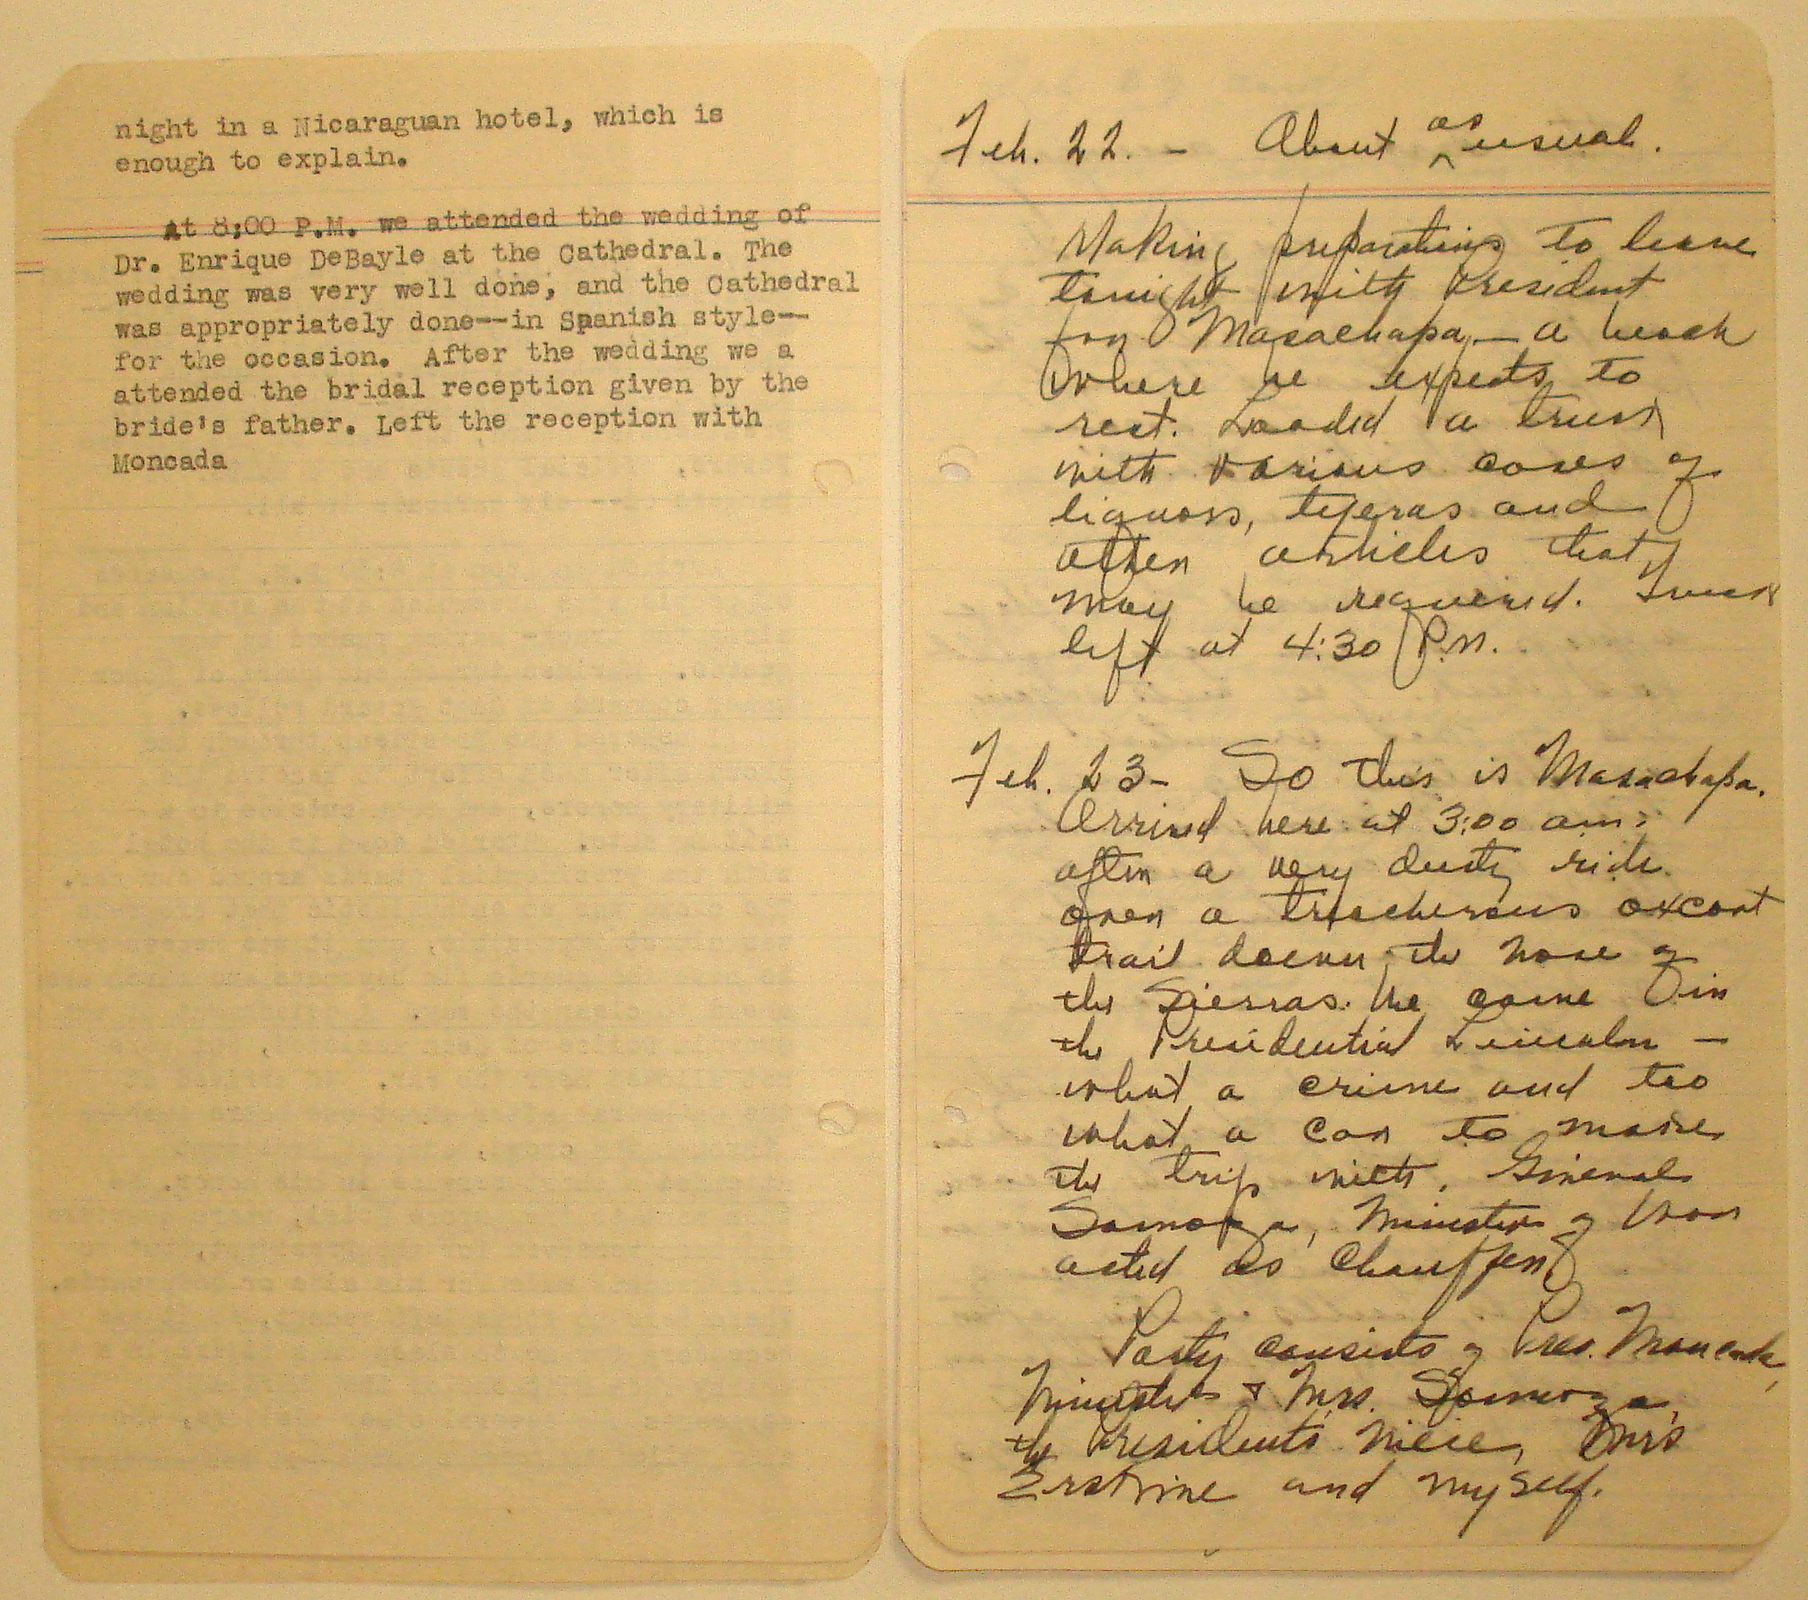 night in a Nicaraguan hotel, which is
enough to explain.
At 8:00 P.M. we attended the wedding of
Dr. Enrique DeBayle at the Cathedral. The
wedding was very well done, and the Cathedral
was appropriately done--in Spanish style--
for the occasion. After the wedding we a
attended the bridal reception given by the
bride's father. Left the reception with
Moncada
Feb. 22. - About as usual.
Making preparations to leave
tonight with President
for Masachapa - a beach
where he expects to
rest. Loaded a truck
with various cases of
liquors, tijeras and
other articles that
may be required. Truck
left at 4:30 P.M.
Feb. 23 - So this is Masachapa.
Arrived here at 3:00 am.
after a very dusty ride
over a treacherous oxcart
trail down the nose of
the Sierras. We came in
the Presidential Lincoln -
what a crime and too
what a car to make
the trip with. General
Somoza, Minister of War
acted as chauffer
Party consists of Pres. Moncada,
Minister & Mrs. Somoza,
the Presidents niece, Mrs
Erskine and myself.